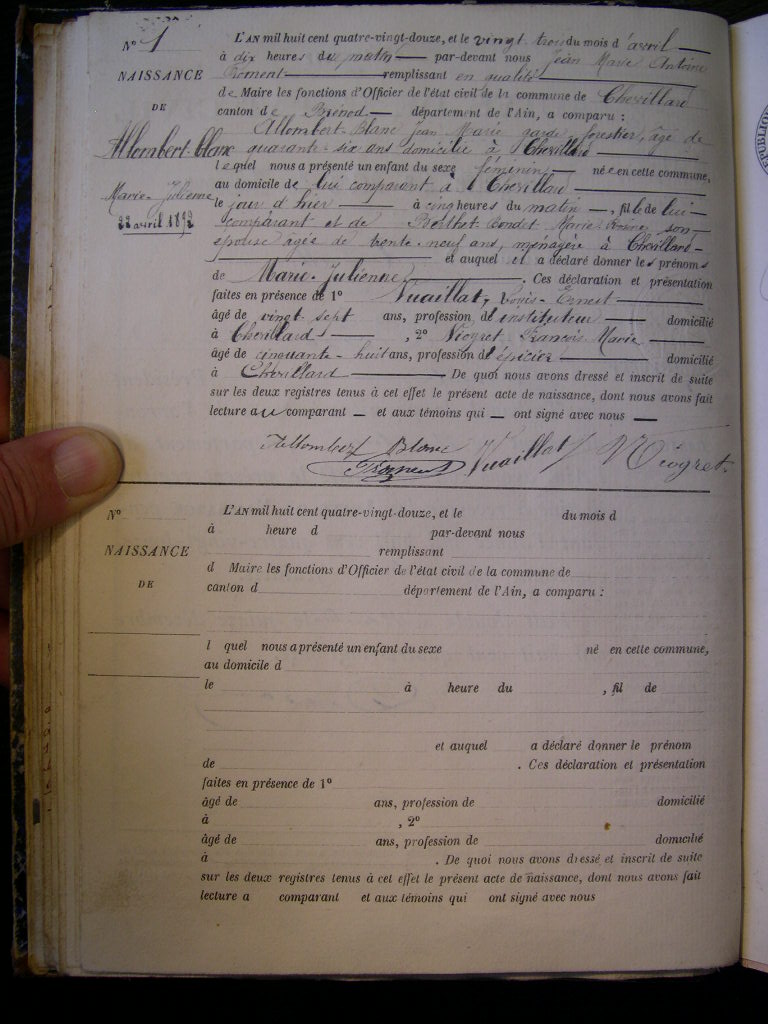 N° 1
NAISSANCE
DE
Allombert-Blanc
Marie-Julienne
22 avril 1892
L'AN mil huit cent quatre-vingt-douze, et le vingt trois du mois d'avril
à dix heures du matin par-devant nous Jean Marie Antoine
Froment remplissant en qualité
de Maire les fonctions d'Officier de l'état civil de la commune de Chevillard
canton de Brénod département de l'Ain, a comparu :
Allombert-Blanc Jean Marie garde-forestier, âgé de
quarante-six ans domicilié à Chevillard
lequel nous a présenté un enfant du sexe féminin née en cette commune,
au domicile de lui comparant à Chevillard
le jour d'hier à cinq heures du matin, fille de lui
comparant et de Berthet-Bondet Marie son
épouse âgée de trente-neuf ans, ménagère à Chevillard
et auquel il a déclaré donner les prénoms
de Marie-Julienne. Ces déclaration et présentation
faites en présence de 1° Vuaillat, Louis-Ernest
âgé de vingt sept ans, profession d'instituteur domicilié
à Chevillard, 2° Nicyret François Marie
âgé de cinquante-huit ans, profession d'épicier domicilié
à Chevillard De quoi nous avons dressé et inscrit de suite
sur les deux registres tenus à cet effet le présent acte de naissance, dont nous avons fait
lecture au comparant et aux témoins qui ont signé avec nous
Allombert Blanc Vuaillat
Froment
N°
NAISSANCE
DE
L'AN mil huit cent quatre-vingt-douze, et le du mois d
à heure d par-devant nous
remplissant
d Maire les fonctions d'Officier de l'état civil de la commune de
canton d département de l'Ain, a comparu :
l quel nous a présenté un enfant du sexe né en cette commune,
au domicile d
le à heure du , fil de
et auquel a déclaré donner le prénom
de . Ces déclaration et présentation
faites en présence de 1°
âgé de ans, profession de domicilié
à , 2°
âgé de ans, profession de domicilié
à . De quoi nous avons dressé et inscrit de suite
sur les deux registres tenus à cet effet le présent acte de naissance, dont nous avons fait
lecture a comparant et aux témoins qui ont signé avec nous